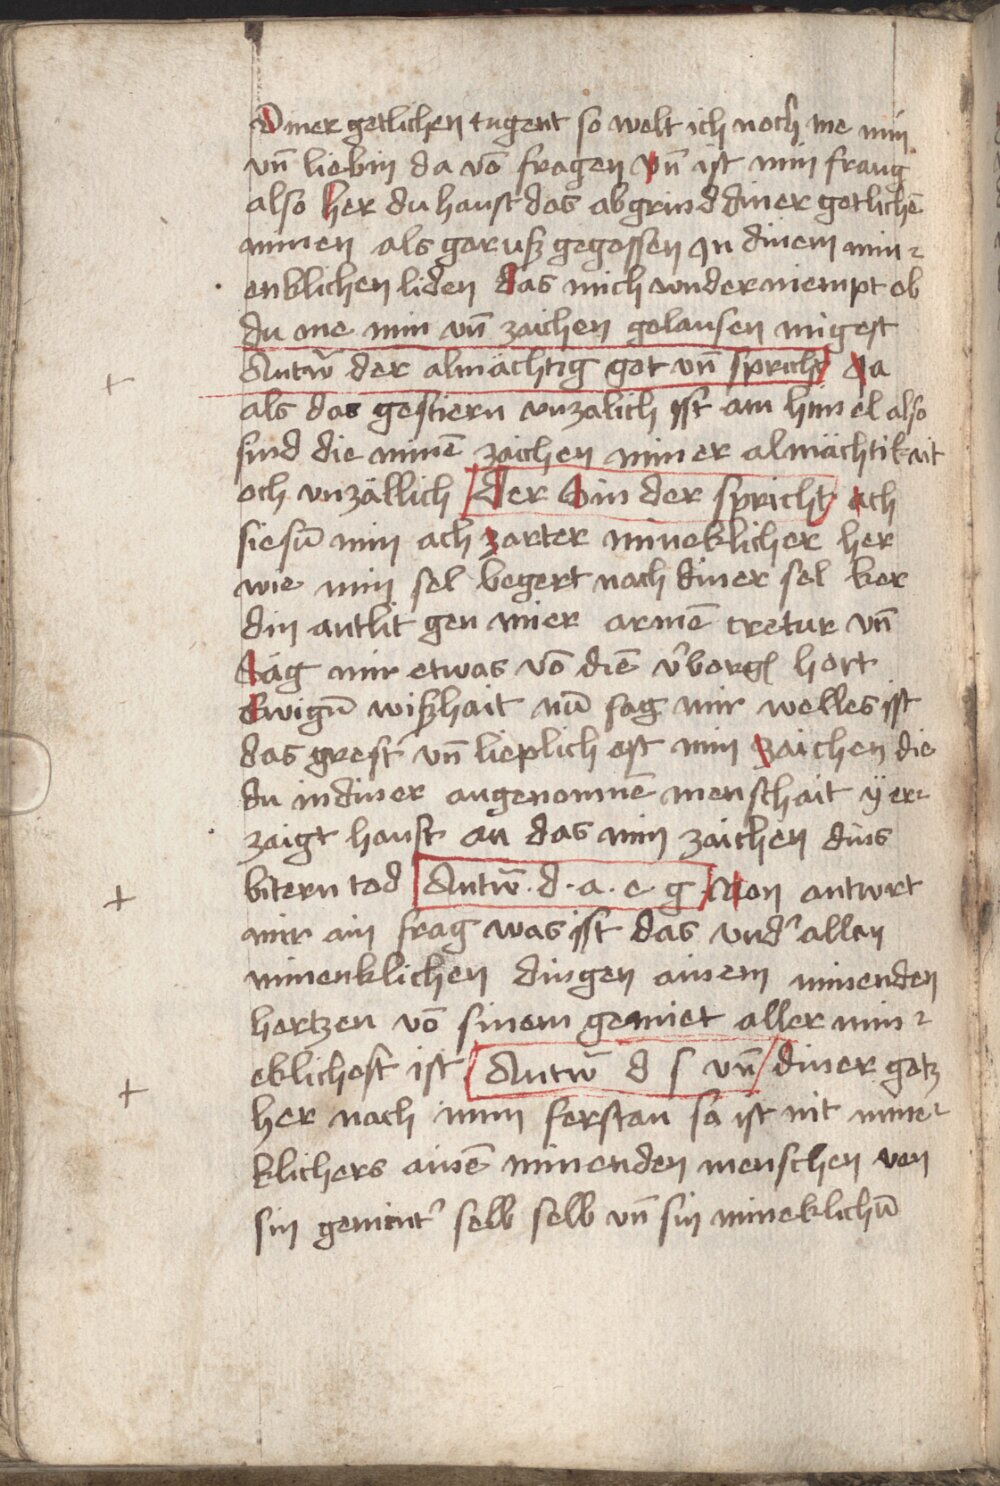 Diner getlichen tugent so welt ich noch me min
vn̄ liebin da vō fragen vn̄ ist min fraug
also her du haust das abgrind diner getlichē
minen als gar uß gegossen In dinem min⸗
enklichen liden das mich wnder niempt ob
du me min vn̄ zaichen gelausen migest
Antw̄ der almächtig got vn̄ spricht Ja
als das gestiern vnzalich ist am himel also
sind die minē zaichen miner almächtikait
och vnzällich Der Din der spricht ach
jiesū min ach zarter mineklicher her
wie min sel begert nach diner sel ker
din antlit gen mier armē cretur vn̄
Säg mir etwas vō diē v'borgē hort
Ewigū wißhait nū sag mir welles ist
das grest vn̄ lieplich est min zaichen die
du in diner angenomnē menschait ÿ er⸗
zaigt haust an das min zaichen dins
bitern tod Antw̄ . d . a . e . g . Non antwrt
mir ain frag was ist das vnd' allen
minenklichen dingen ainem minenden
hertzen vō sinem gemiet aller min⸗
eklichest ist Antw̄ d s vn̄ diner getz
her nach mim ferstan so ist nit mine⸗
klichers ainē minenden menschen von
sin gemint' selb selb vn̄ sin mineklichū